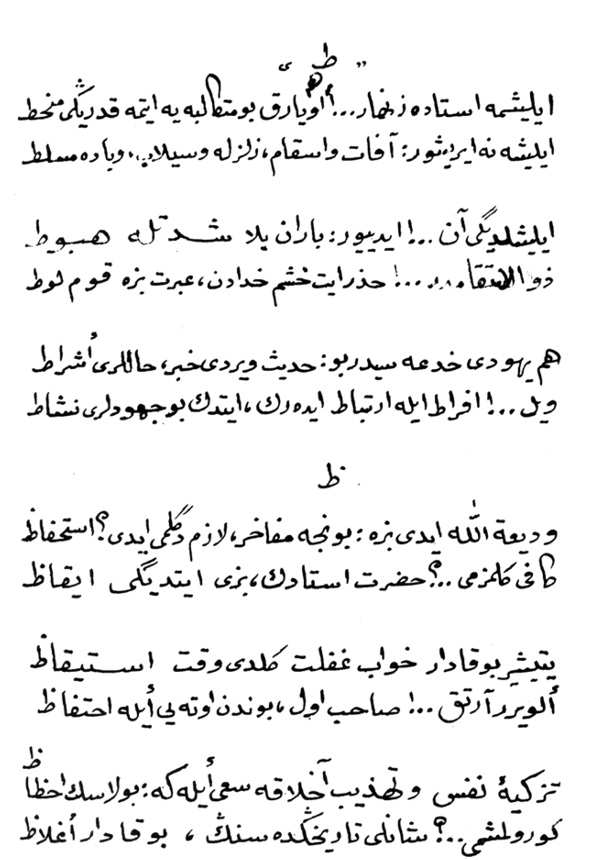 ط
ايليشمه استاده زنهار...! أويارق بو متطالبه يه ايتمه قدريڭى منحط
ايليشه نه ايريشور: آفات واسقام، زلزله وسيلاب، وباده مسلط
ايليشلديگى آن ...! ايدييور: باران بلا شدتله هبوط
ذو الانتقامدر ...! حذر ايت خشم خدادن، عبرت بزه قوم لوط
هم يهودى خدعه سيدر بو: حديث ويردى خبر، حاللرى أشراط
ويل ...! افراط ايله ارتباط ايده رك، ايتدك بو جهودلرى نشاط
ظ
وديعة الله ايدى بزه: بونجه مفاخر، لازم دگلمى ايدى؟ استحفاظ
كافى كلمزمى ..؟ حضرت استادك، بزى ايتديگى ايقاظ
يتيشير بوقادار خواب غفلت كلدى وقت استيقاظ
ألويرر آرتق ...! صاحب اول، بوندن اوته يى أيله احتفاظ
تزكيهٔ نفس وتهذيب أخلاقه سعى أيله كه: بولاسك احظاظ
كورولمشمى ..؟ شانلى تاريخڭده سنڭ، بوقادار أغلاظ